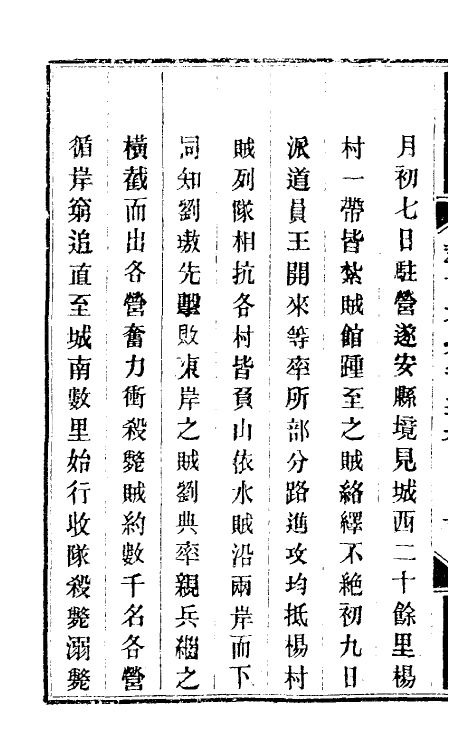 月初七日駐營遂安縣境見城西二十餘里楊
村一帶皆紮賊館踵至之賊絡繹不絕初九日
派道員王開來等率所部分路進攻均抵楊村
賊列隊相抗各村皆負山依水賊沿兩岸而下
同知劉璈先擊敗東岸之賊劉典率親兵繼之
橫截而出各營奮力衝殺斃賊約數千名各營
循岸窮追直至城南數里始行收隊殺斃溺斃